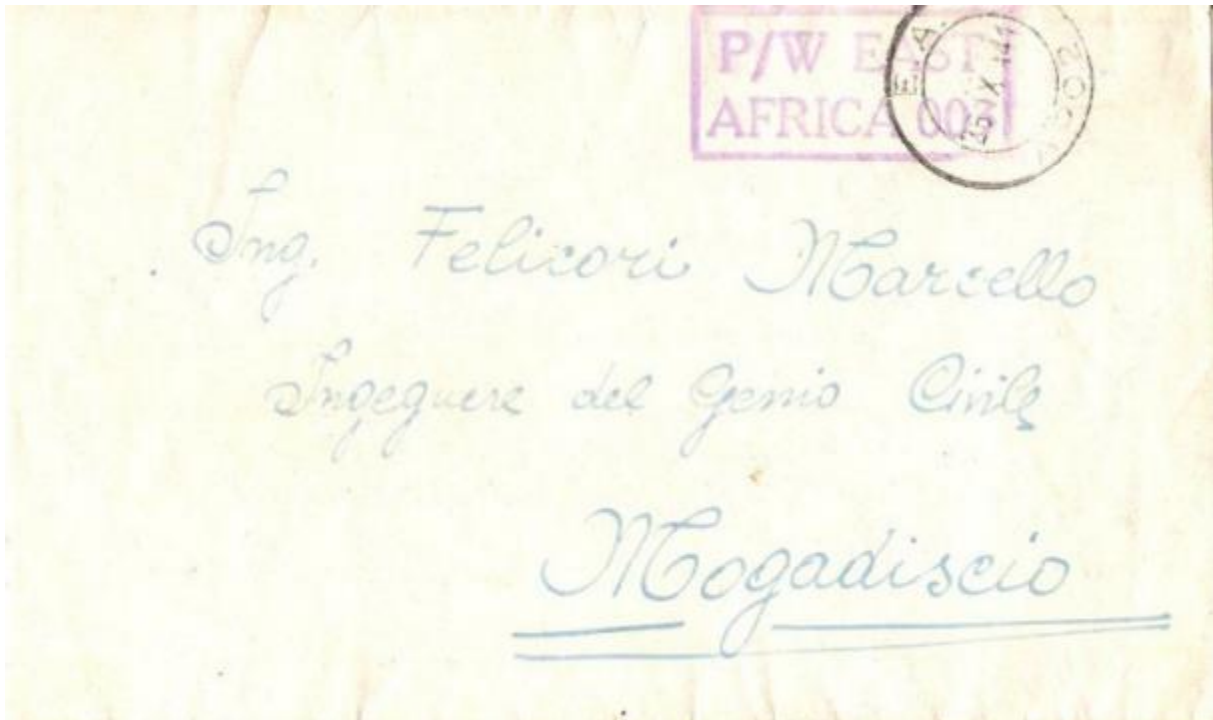 P/W EAST
AFRICA 003
E. A.
15 X 41
Ing. Felicori Marcello
Ingegnere del Genio Civile
Mogadiscio